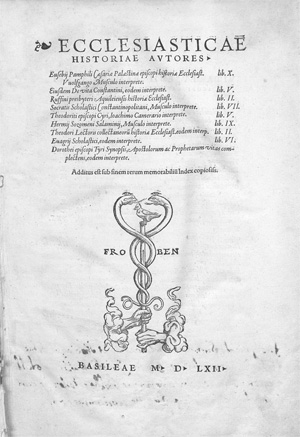 ECCLESIASTICAE
HISTORIAE AVTORES
Eusebij Pamphili Cæsariæ Palæstinæ episcopi historiæ Ecclesiast. lib. X.
Vuolfgango Musculo interprete.
Eiusdem De vita Constantini, eodem interprete. lib. V.
Ruffini presbyteri Aquileiensis historiæ Ecclesiast. lib. II.
Socratis Scholastici Constantinopolitani, Musculo interprete. lib. VII.
Theodoriti episcopi Cyri, Ioachimo Camerario interprete. lib. V.
Hermij Sozomeni Salaminij, Musculo interprete. lib. IX.
Theodori Lectoris collectaneorū historiæ Ecclesiast. eodem interp. lib. II.
Euagrij Scholastici, eodem interprete. lib. VI.
Dorothei episcopi Tyri Synopsis, Apostolorum ac Prophetarum vitas com
plectens, eodem interprete.
Additus est sub finem rerum memorabiliū Index copiosiss.
FRO BEN
BASILEAE M D LXII